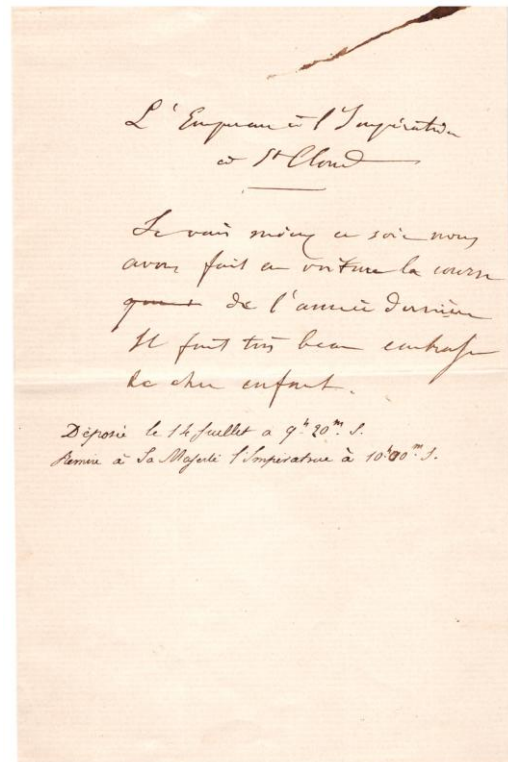 L'Empereur à l'Impératrice
à St Cloud
Je vais mieux ce soir nous
avons fait en voiture la course
de l'année dernière
Il fait très beau embrasse
le cher enfant.
Déposée le 14 Juillet a 9h 20m. S.
Remise à Sa Majesté l'Impératrice à 10h 00m. S.